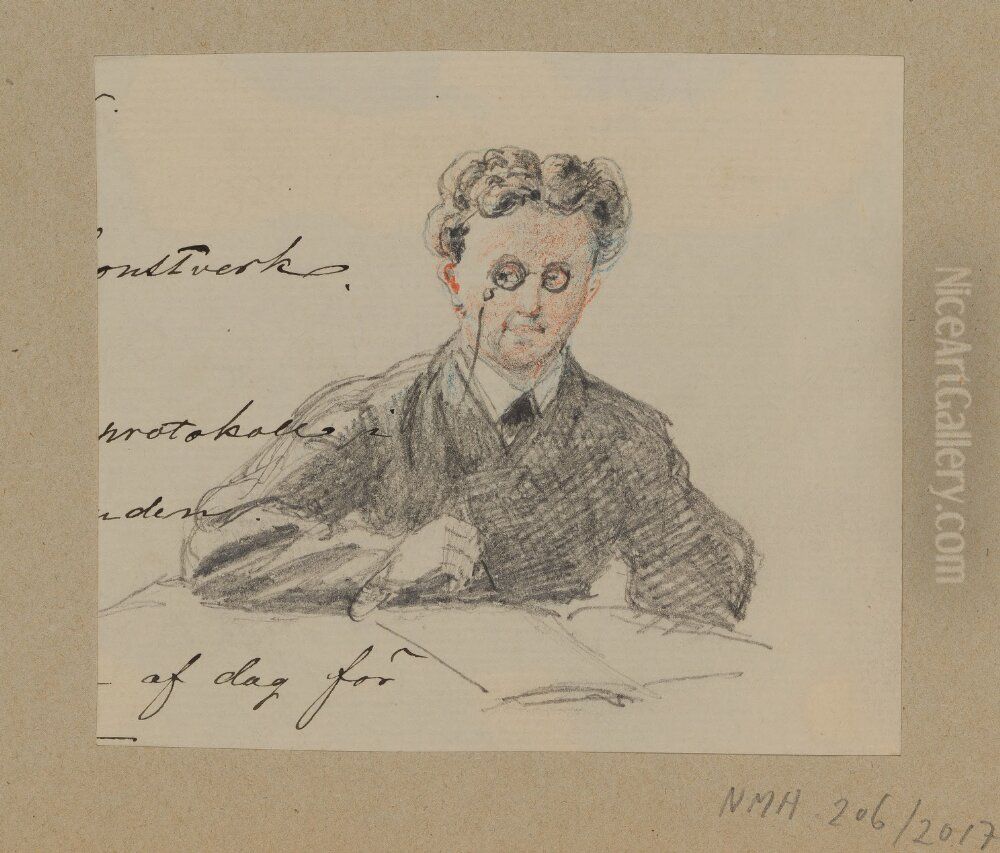 onstverk.
protokoll i
nden.
af dag för
NMH 206/2017
NiceArtGallery.com